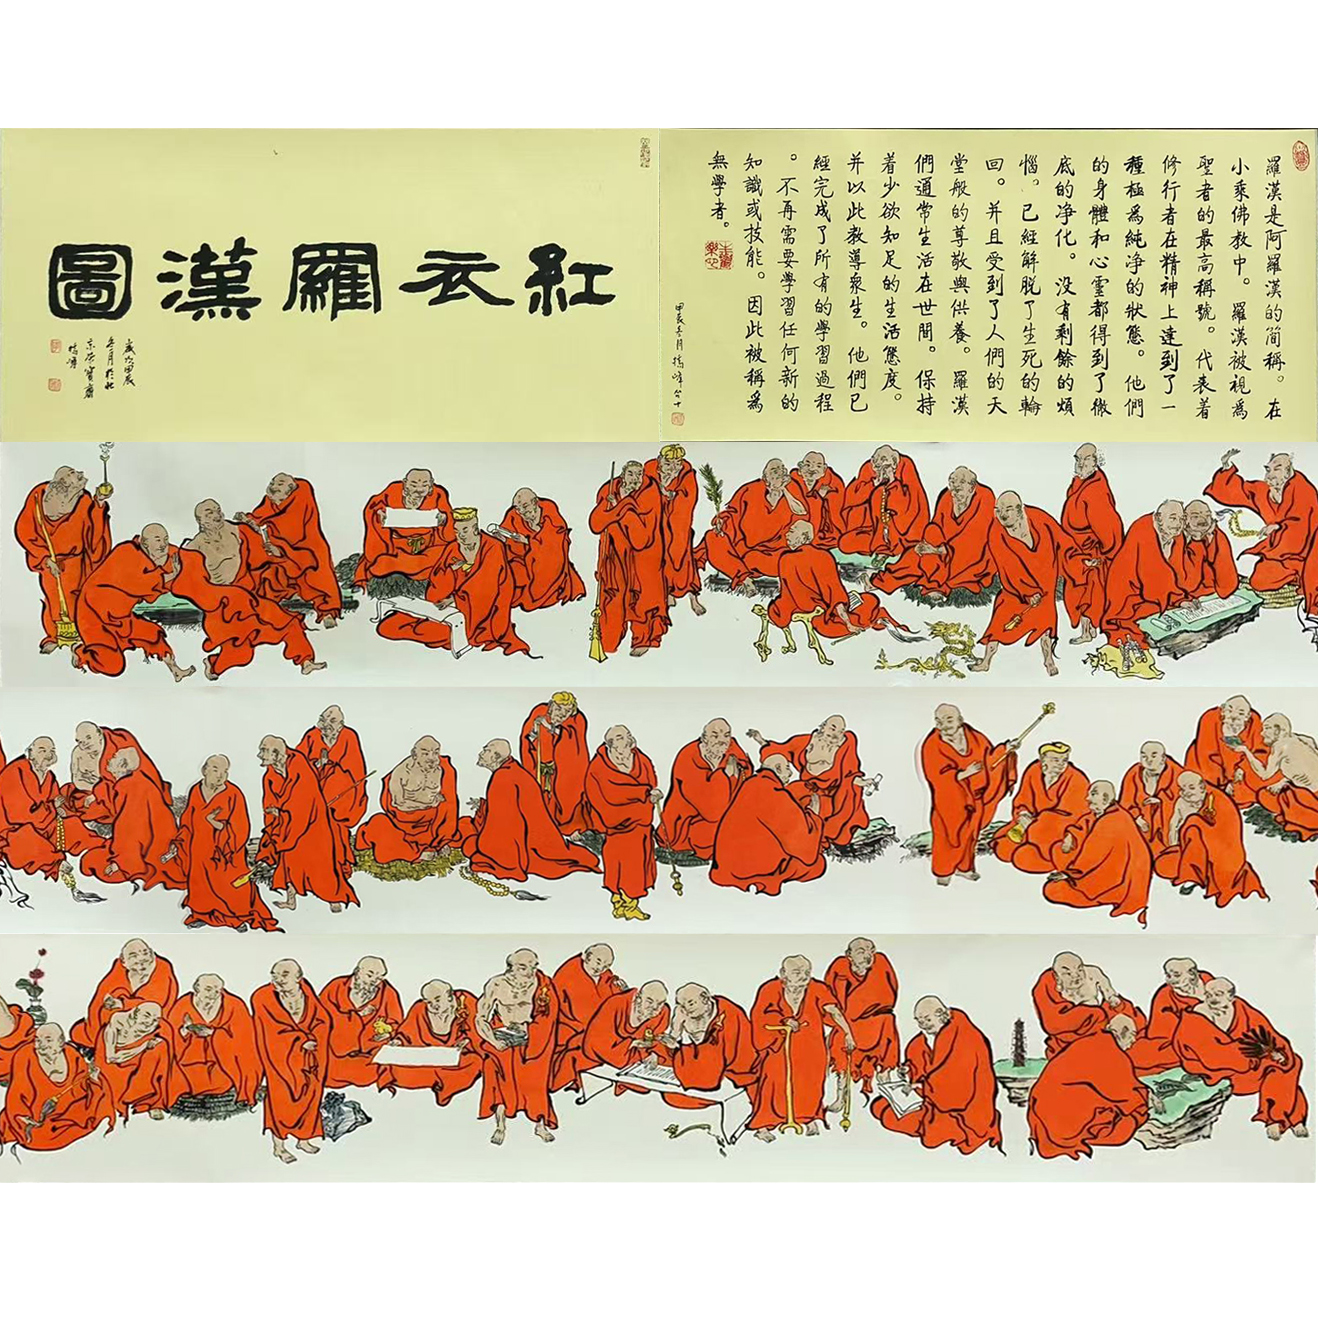 紅衣羅漢圖
歲次甲辰
月於北
京榮寶齋
羅漢是阿羅漢的簡稱。在
小乘佛教中。羅漢被視為
聖者的最高稱號。代表着
修行者在精神上達到了一
種極為純净的狀態。他們
的身體和心靈都得到了徹
底的净化。沒有剩餘的煩
惱。已經解脫了生死的輪
回。并且受到了人們的天
堂般的尊敬與供養。羅漢
們通常生活在世間。保持
着少欲知足的生活態度。
并以此教導衆生。他們已
經完成了所有的學習過程
。不再需要學習任何新的
知識或技能。因此被稱為
無學者。
甲辰